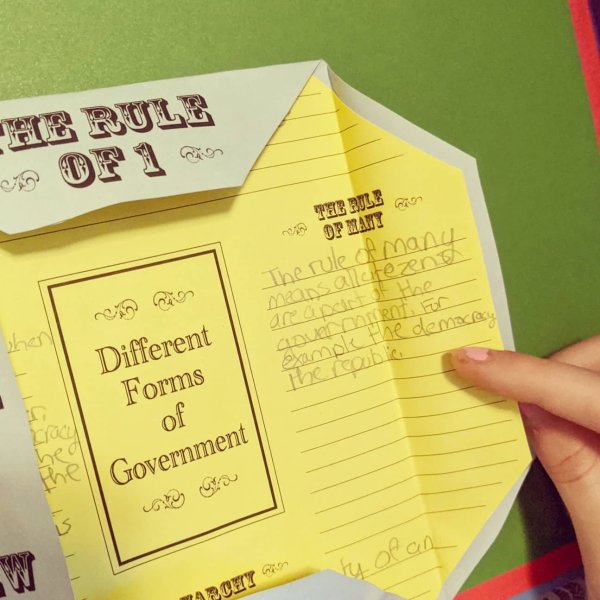 THE RULE
OF 1
THE RULE
OF MANY
The rule of many
means all citezents
are a part of the
government. For
example the democracy
the republic.
Different
Forms
of
Government
when
the
ty of an